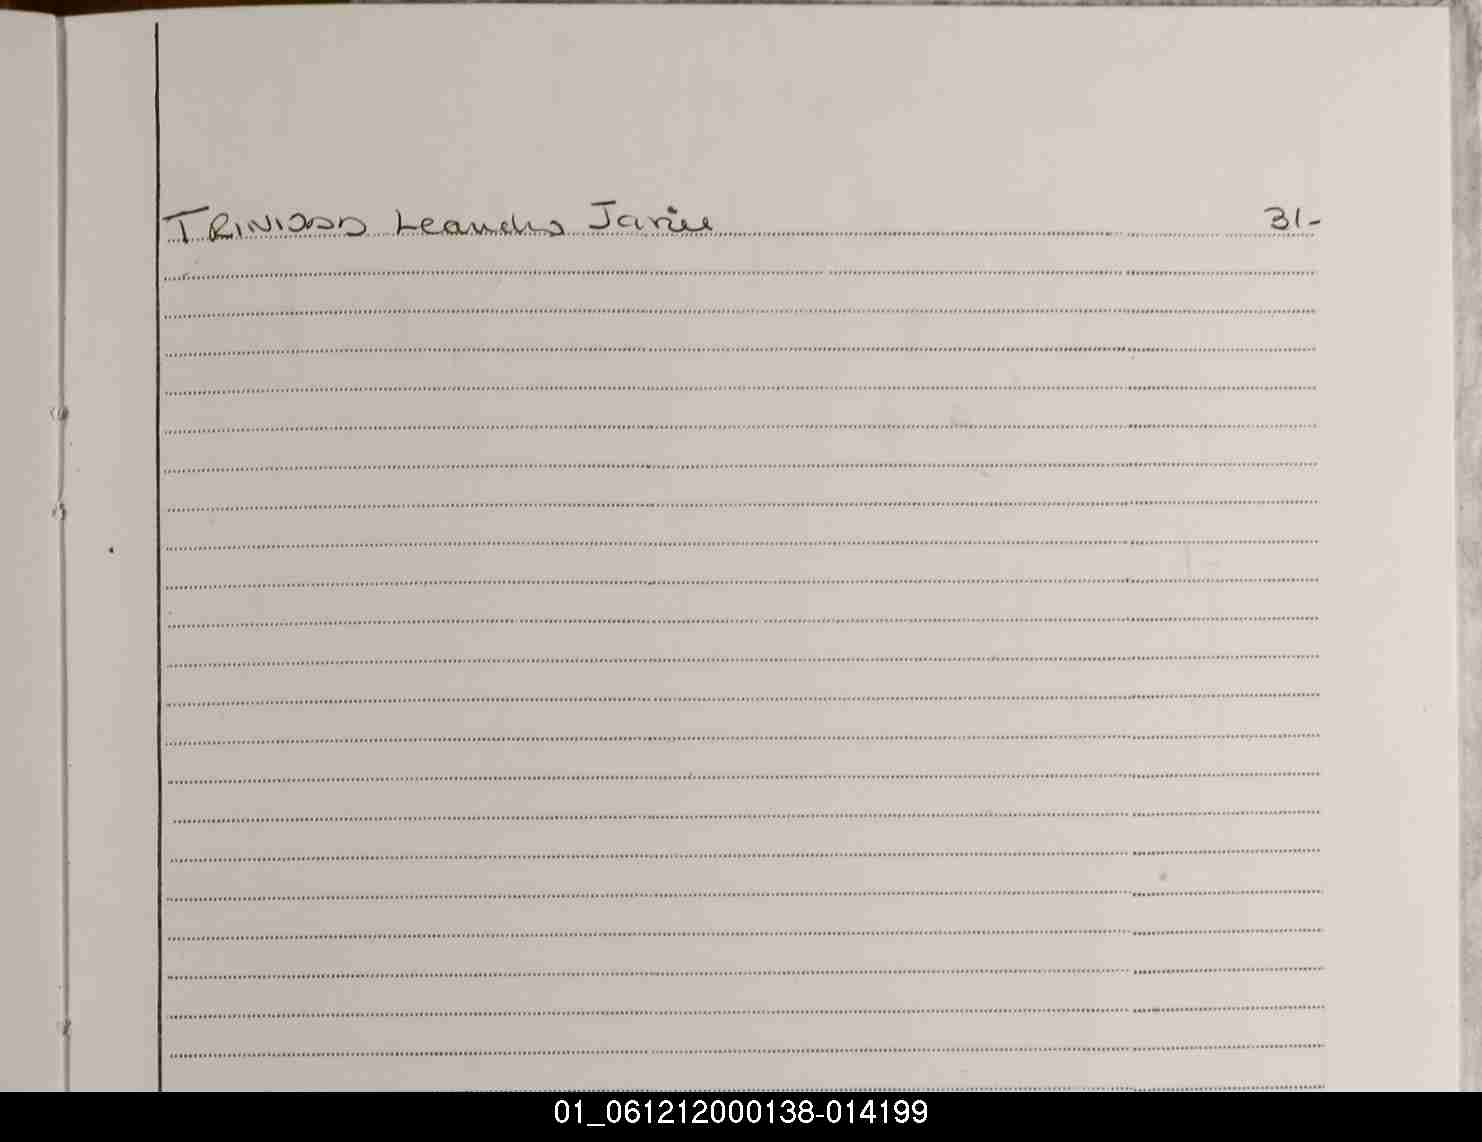 TRINIDAD Leandro Javier 31-
01_061212000138-014199